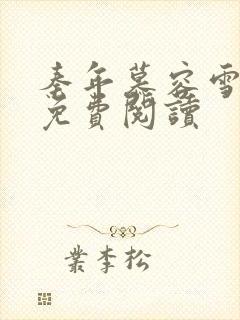 秦年慕容雪
免費閱讀
業李松